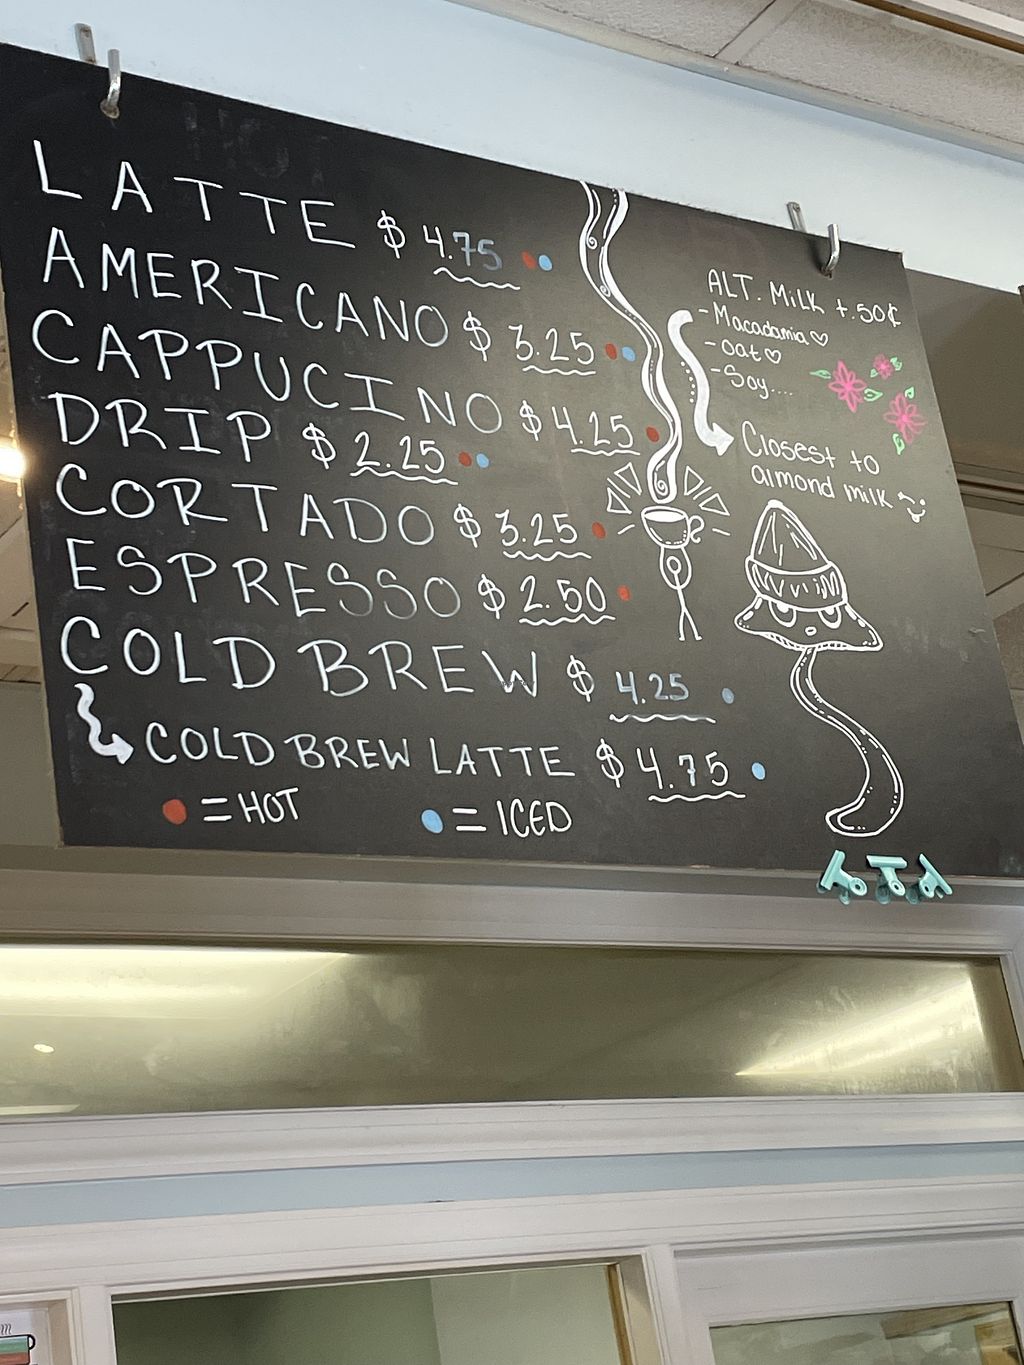 LATTE $ 4.75
AMERICANO $ 3.25
CAPPUCINO $ 4.25
DRIP $ 2.25
CORTADO $ 3.25
ESPRESSO $ 2.50
COLD BREW $ 4.25
COLD BREW LATTE $ 4.75
= HOT
= ICED
ALT. MiLK +.50¢
- Macadamia ♡
- Oat ♡
- Soy....
Closest to
almond milk